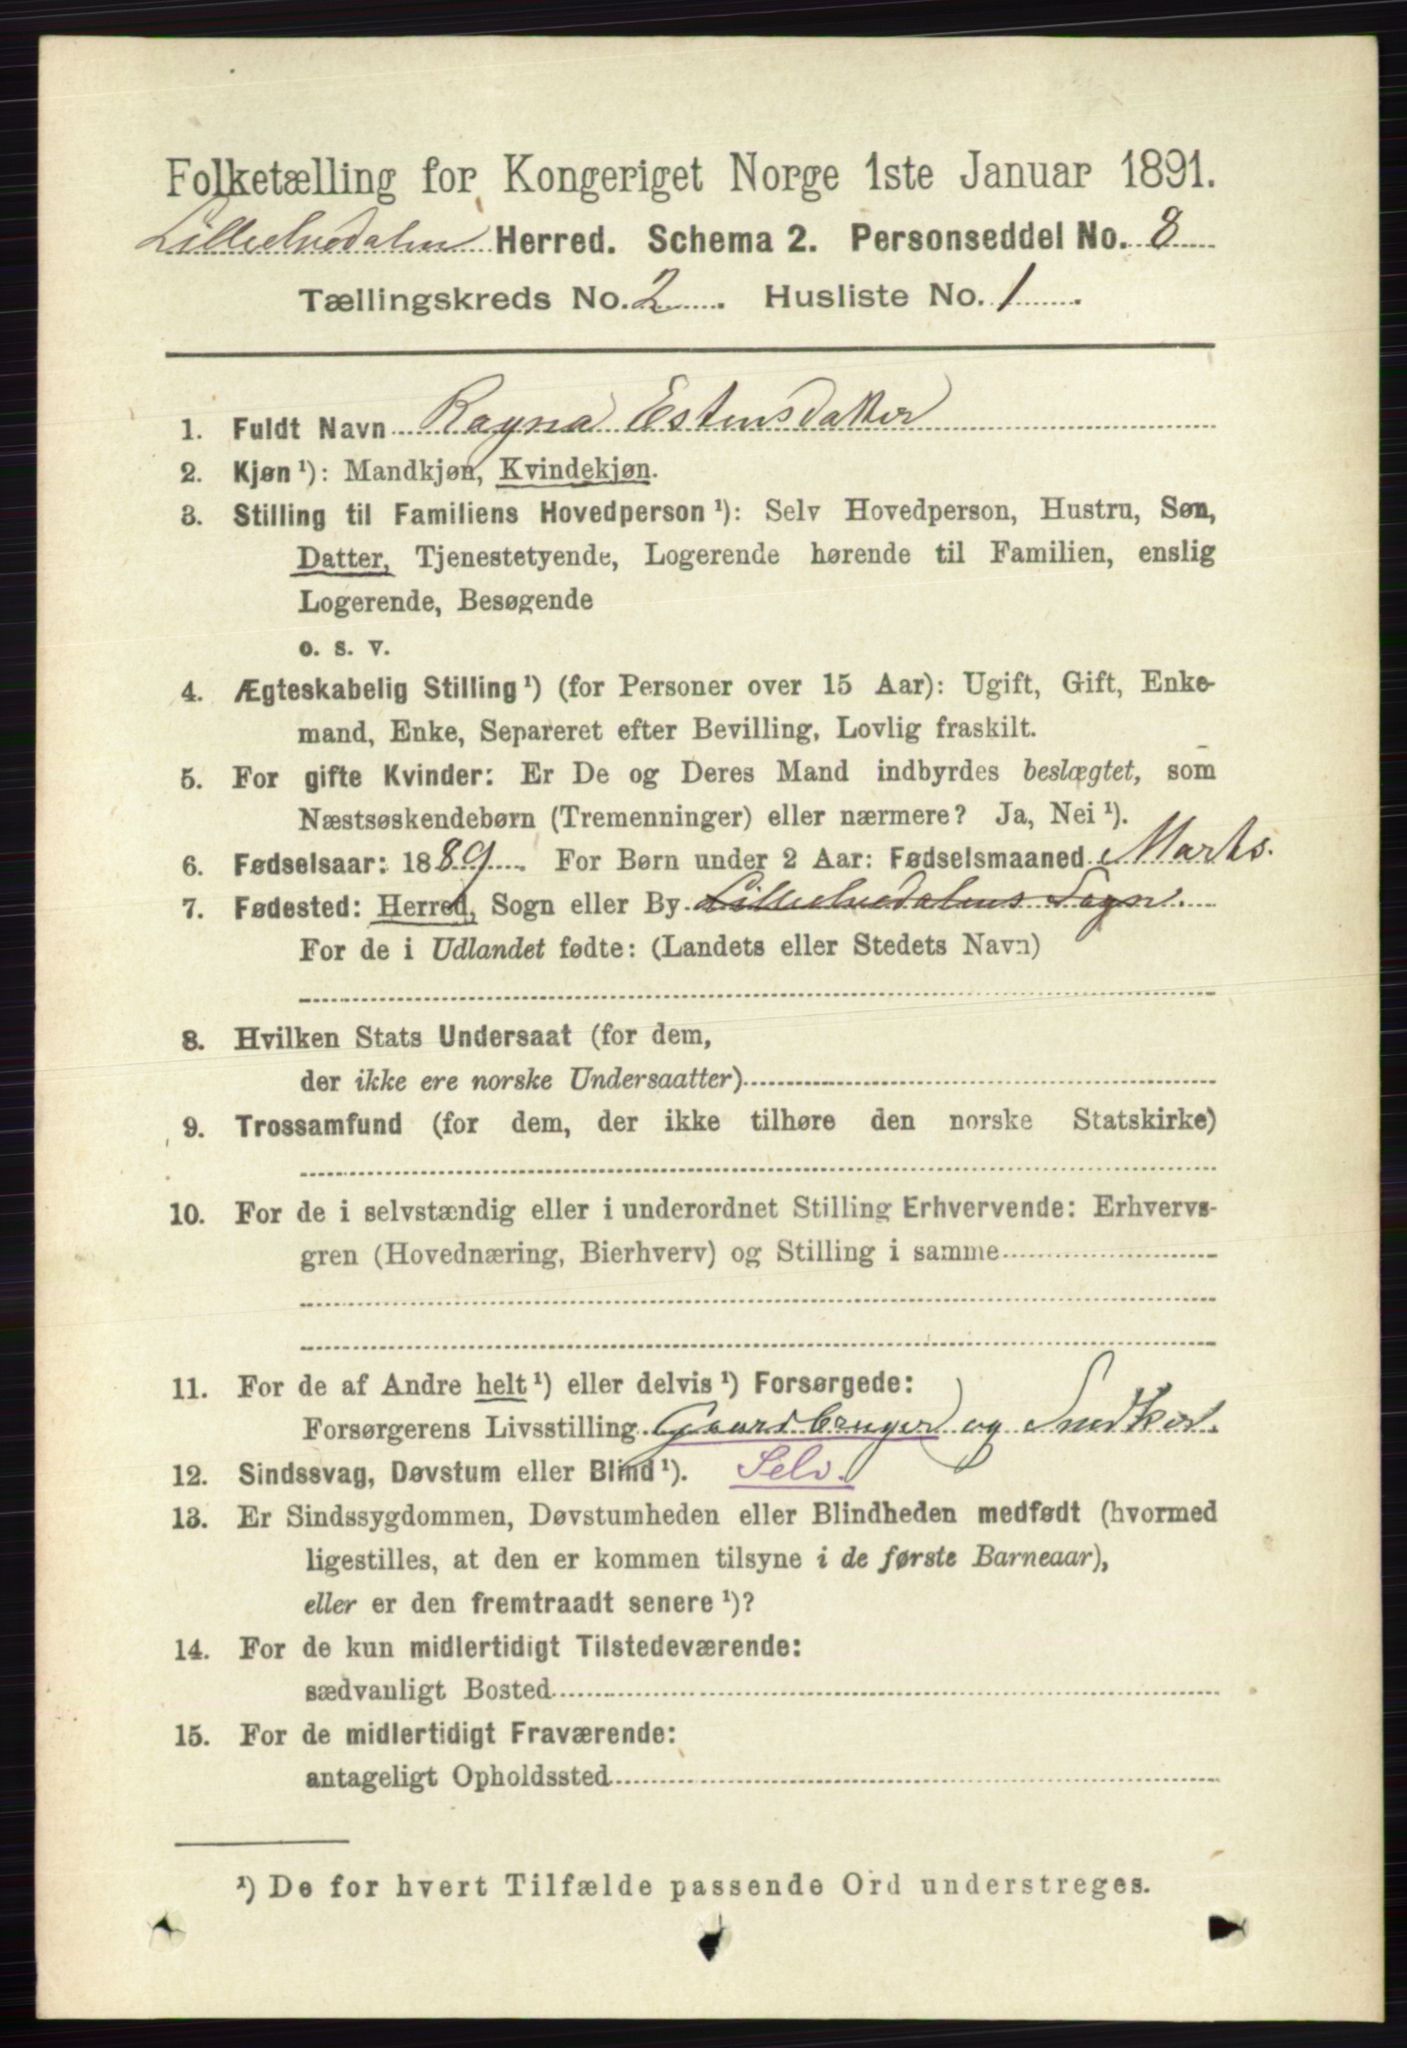 Folketælling for Kongeriget Norge 1ste Januar 1891.
Lilleelvedalen Herred. Schema 2. Personseddel No. 8
Tællingskreds No. 2. Husliste No. 1.
1. Fuldt Navn Ragna Estensdatter
2. Kjøn ¹): Mandkjøn, Kvindekjøn.
3. Stilling til Familiens Hovedperson ¹): Selv Hovedperson, Hustru, Søn,
Datter, Tjenestetyende, Logerende hørende til Familien, enslig
Logerende, Besøgende
o. s. v.
4. Ægteskabelig Stilling ¹) (for Personer over 15 Aar): Ugift, Gift, Enke-
mand, Enke, Separeret efter Bevilling, Lovlig fraskilt.
5. For gifte Kvinder: Er De og Deres Mand indbyrdes beslægtet, som
Næstsøskendebørn (Tremenninger) eller nærmere? Ja, Nei ¹).
6. Fødselsaar: 1889. For Børn under 2 Aar: Fødselsmaaned Marts.
7. Fødested: Herred, Sogn eller By Lilleelvedalens Sogn.
For de i Udlandet fødte: (Landets eller Stedets Navn)
8. Hvilken Stats Undersaat (for dem,
der ikke ere norske Undersaatter)
9. Trossamfund (for dem, der ikke tilhøre den norske Statskirke)
10. For de i selvstændig eller i underordnet Stilling Erhvervende: Erhvervs-
gren (Hovednæring, Bierhverv) og Stilling i samme
11. For de af Andre helt ¹) eller delvis ¹) Forsørgede:
Forsørgerens Livsstilling Gaardbruger og Snedker.
12. Sindssvag, Døvstum eller Blind ¹). Selv.
13. Er Sindssygdommen, Døvstumheden eller Blindheden medfødt (hvormed
ligestilles, at den er kommen tilsyne i de første Barneaar),
eller er den fremtraadt senere ¹)?
14. For de kun midlertidigt Tilstedeværende:
sædvanligt Bosted
15. For de midlertidigt Fraværende:
antageligt Opholdssted
¹) De for hvert Tilfælde passende Ord understreges.